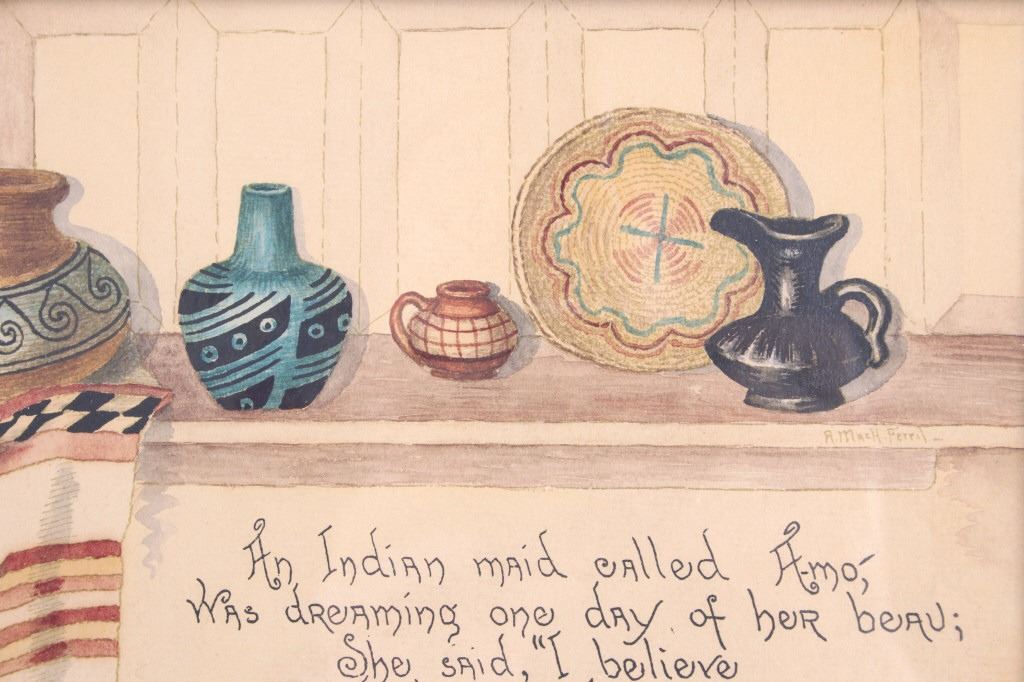 An Indian maid called A-mo,
Was dreaming one day of her beau;
She said, "I believe